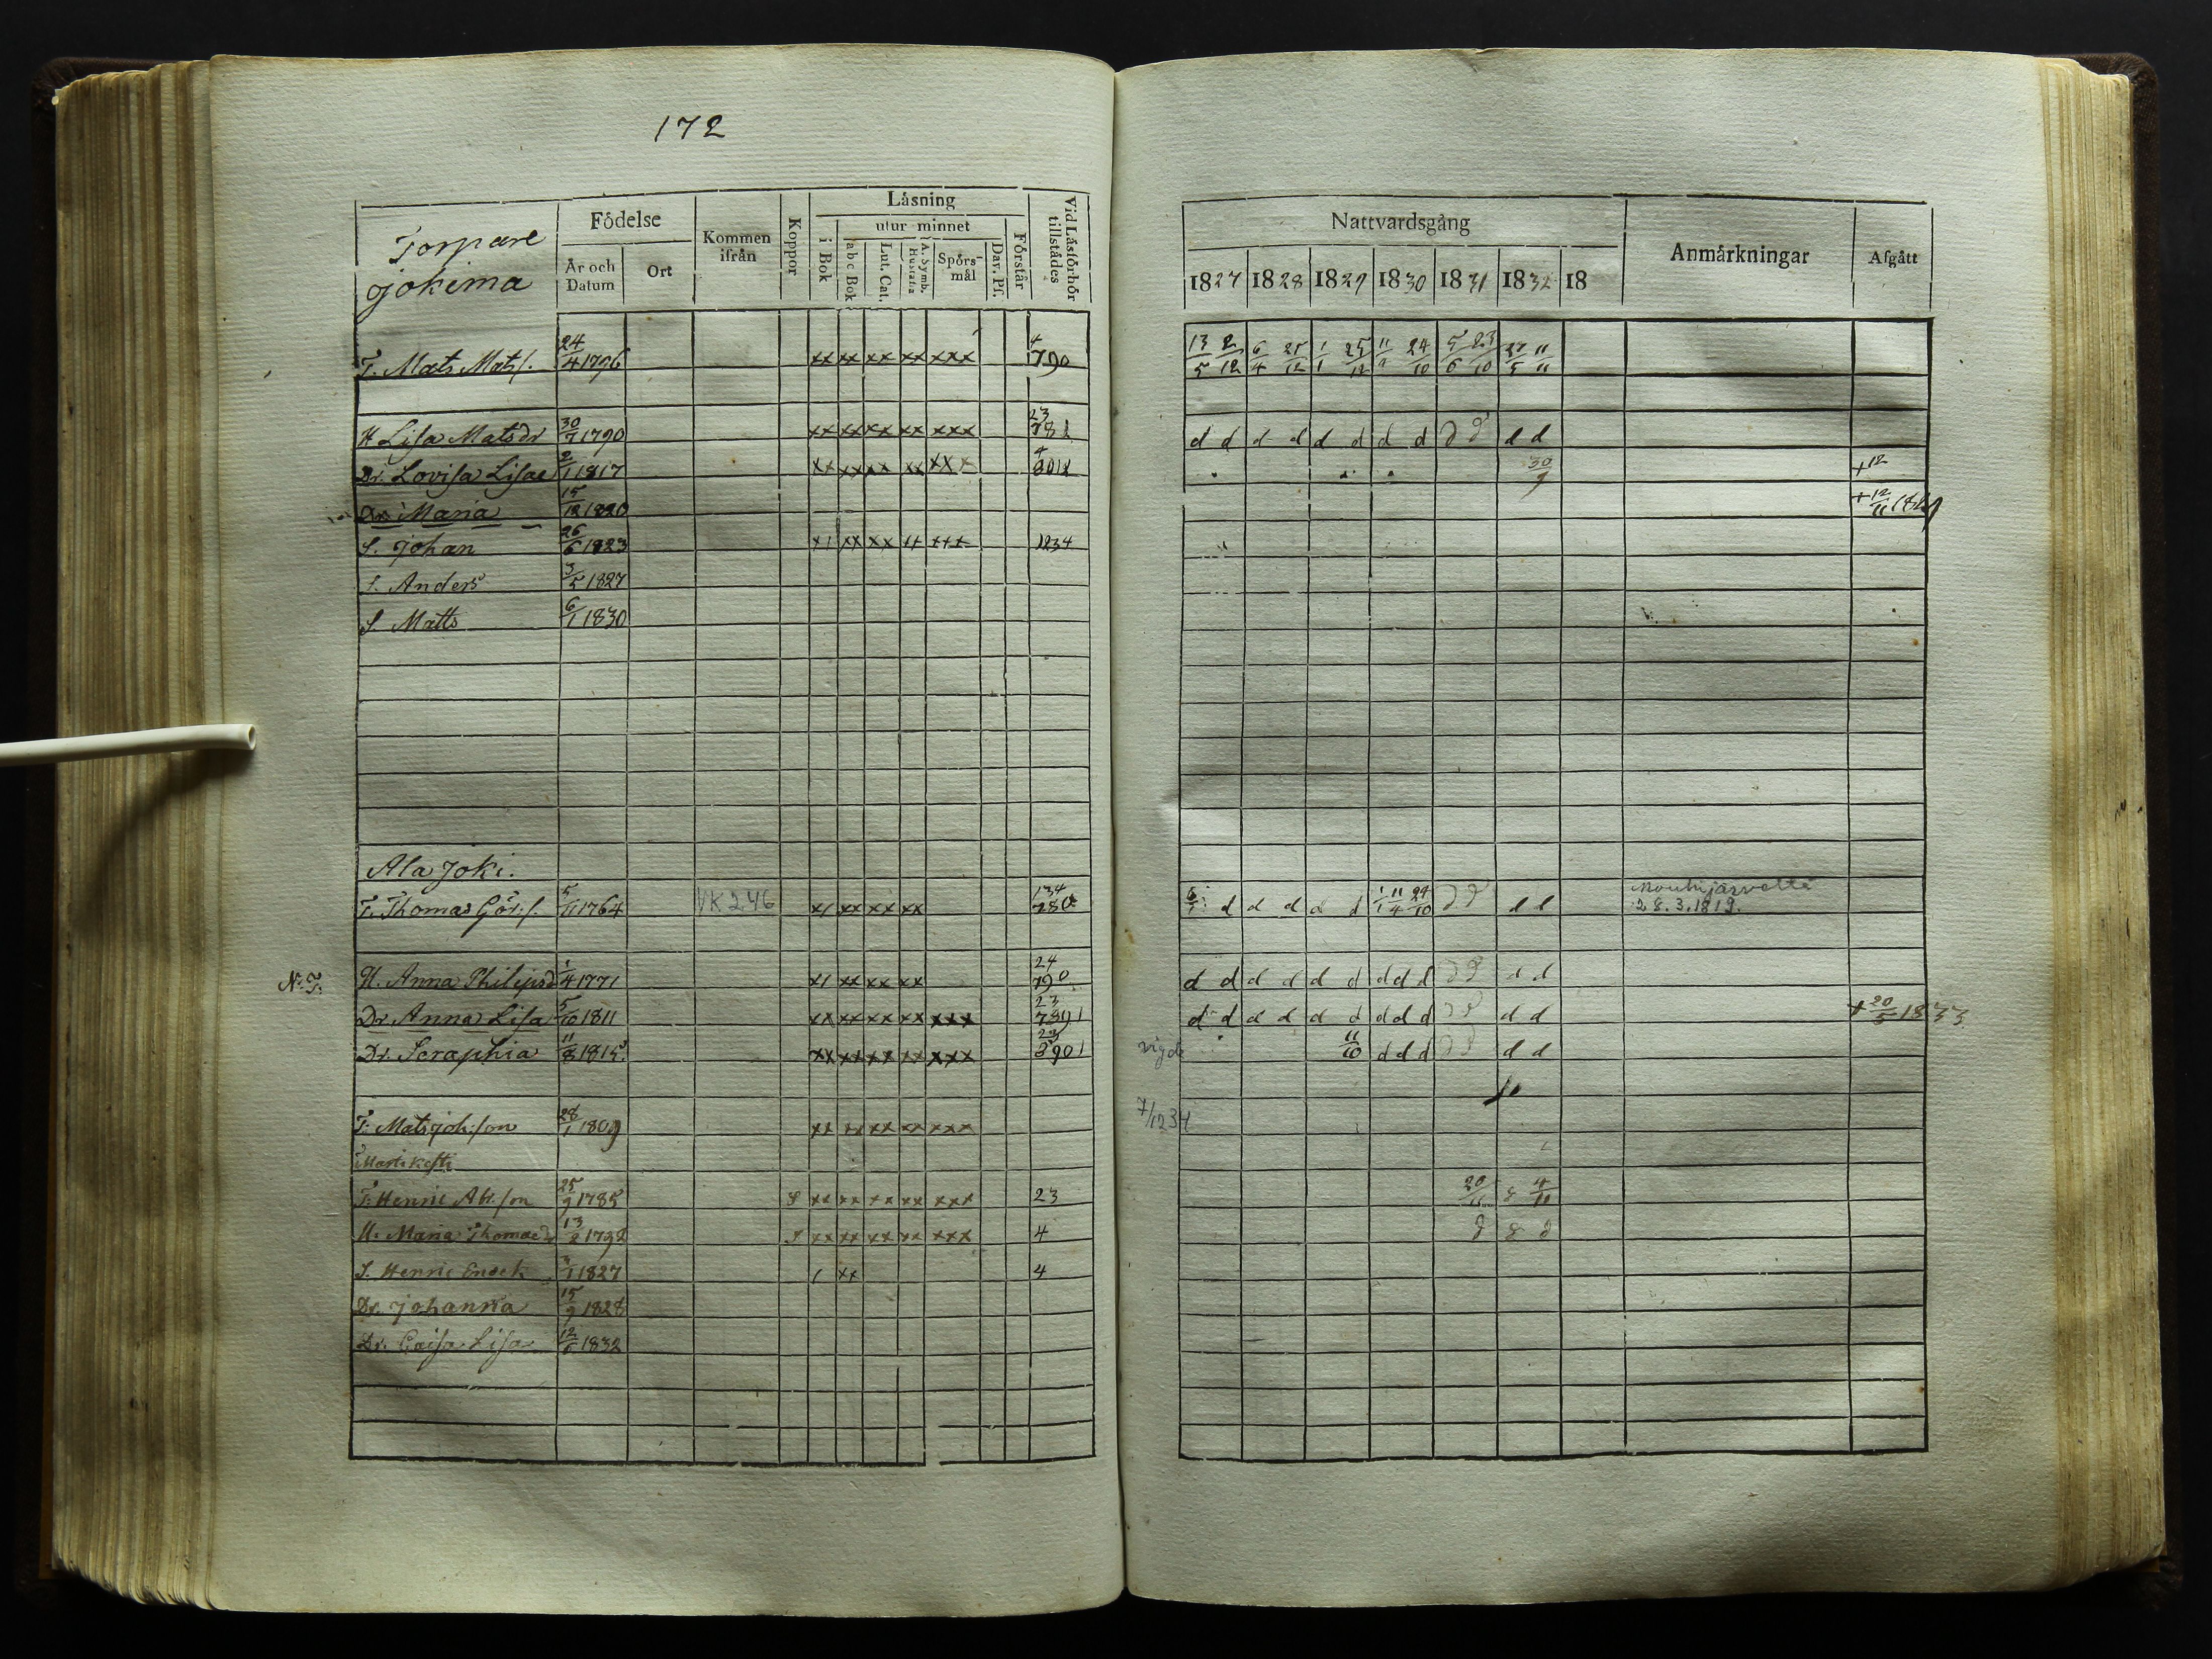 172
Torpare
Jokima
Födelse
År och Datum
Ort
Kommen ifrån
Koppor
Läsning
i Bok
utur minnet
a b c Bok
Lut. Cat.
A. Symb. Hustafla
Spörsmål
Dav. Ps.
Förstår
Vid Läsförhör tillstädes
Nattvardsgång
1827 1828 1829 1830 1831 1832 18
Anmärkningar
Afgått
T. Mats Mats. 24/4 1796 xx xx xx xx xxx 4 790 13/5 2/12 6/4 25/12 1/1 25/12 24/10 5/6 23/10 27/5 11/11
H Lisa Matsdr 30/7 1790 xx xx xx xx xxx 23 781 d d d d d d d d d d d d
Dr. Lovisa Lisae 2/1 1817 xx xx xx xx xxx 4 30/9 + 12
Dr Maria 15/12 1820 + 12/11 1829
S. Johan 26/6 1823 x1 xx xx xxx 1234
S. Anders 3/5 1827
S Matts 6/1 1830
Ala Joki.
T. Thomas Gör.s. 5/11 1764 VK 246 x1 xx xx xx 134 780 6/1 d d d d d 1/1 11/4 24/10 d d d d Mouhijärvellä
28.3.1819.
N.T. H. Anna Philipsd 1/4 1771 x1 xx xx xx 24 790 d d d d d d d d d d d d d
Dr Anna Lisa 5/10 1811 xx xx xx xx xxx 23 7891 d d d d d d d d d d d d d + 20/5 1833
Dr. Seraphia 11/8 1815. xx xx xx xx xxx 23 8901 vigde 11/10 d d d d d d d
7/12 34
T. Mats Joh:son 28/1 1809 xx xx xx xx xxx
T. Henric Abr.son 25/9 1785 xx xx xx xx xxx 23 20/11 4/11
H. Maria Thomaed 13/2 1792 xx xx xx xx xxx 4
S. Henric Enoch 1827 1 xx 4
Dr. Johanna 15/9 1828
Dr. Caisa Lisa 1832